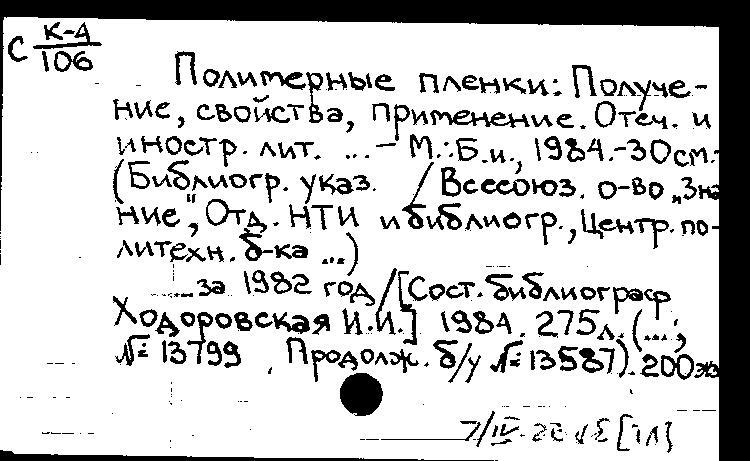 С К-4
106
Полимерные пленки: Получе-
ние, свойства, применение. Отеч. и
иностр. лит. ... - М.: Б.и., 1984.-30см.-
(Библиогр. указ. / Всесоюз. о-во „Зна
ние", Отд. НТИ и библиогр., Центр. по-
литехн. б-ка ...)
... за 1982 год / [Сост. библиограф
Ходоровская И.И.] 1984. 275л. (...;
№ 13799. Продолж. б/у № 13587). 200 экз
7/IV